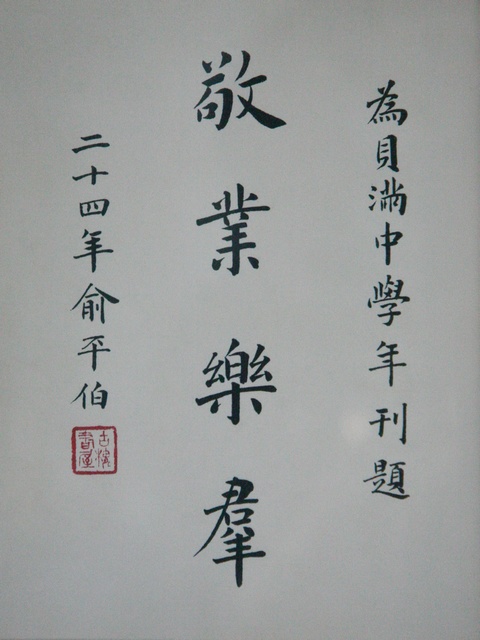 為貝滿中學年刊題
敬業樂羣
二十四年俞平伯
古槐書屋